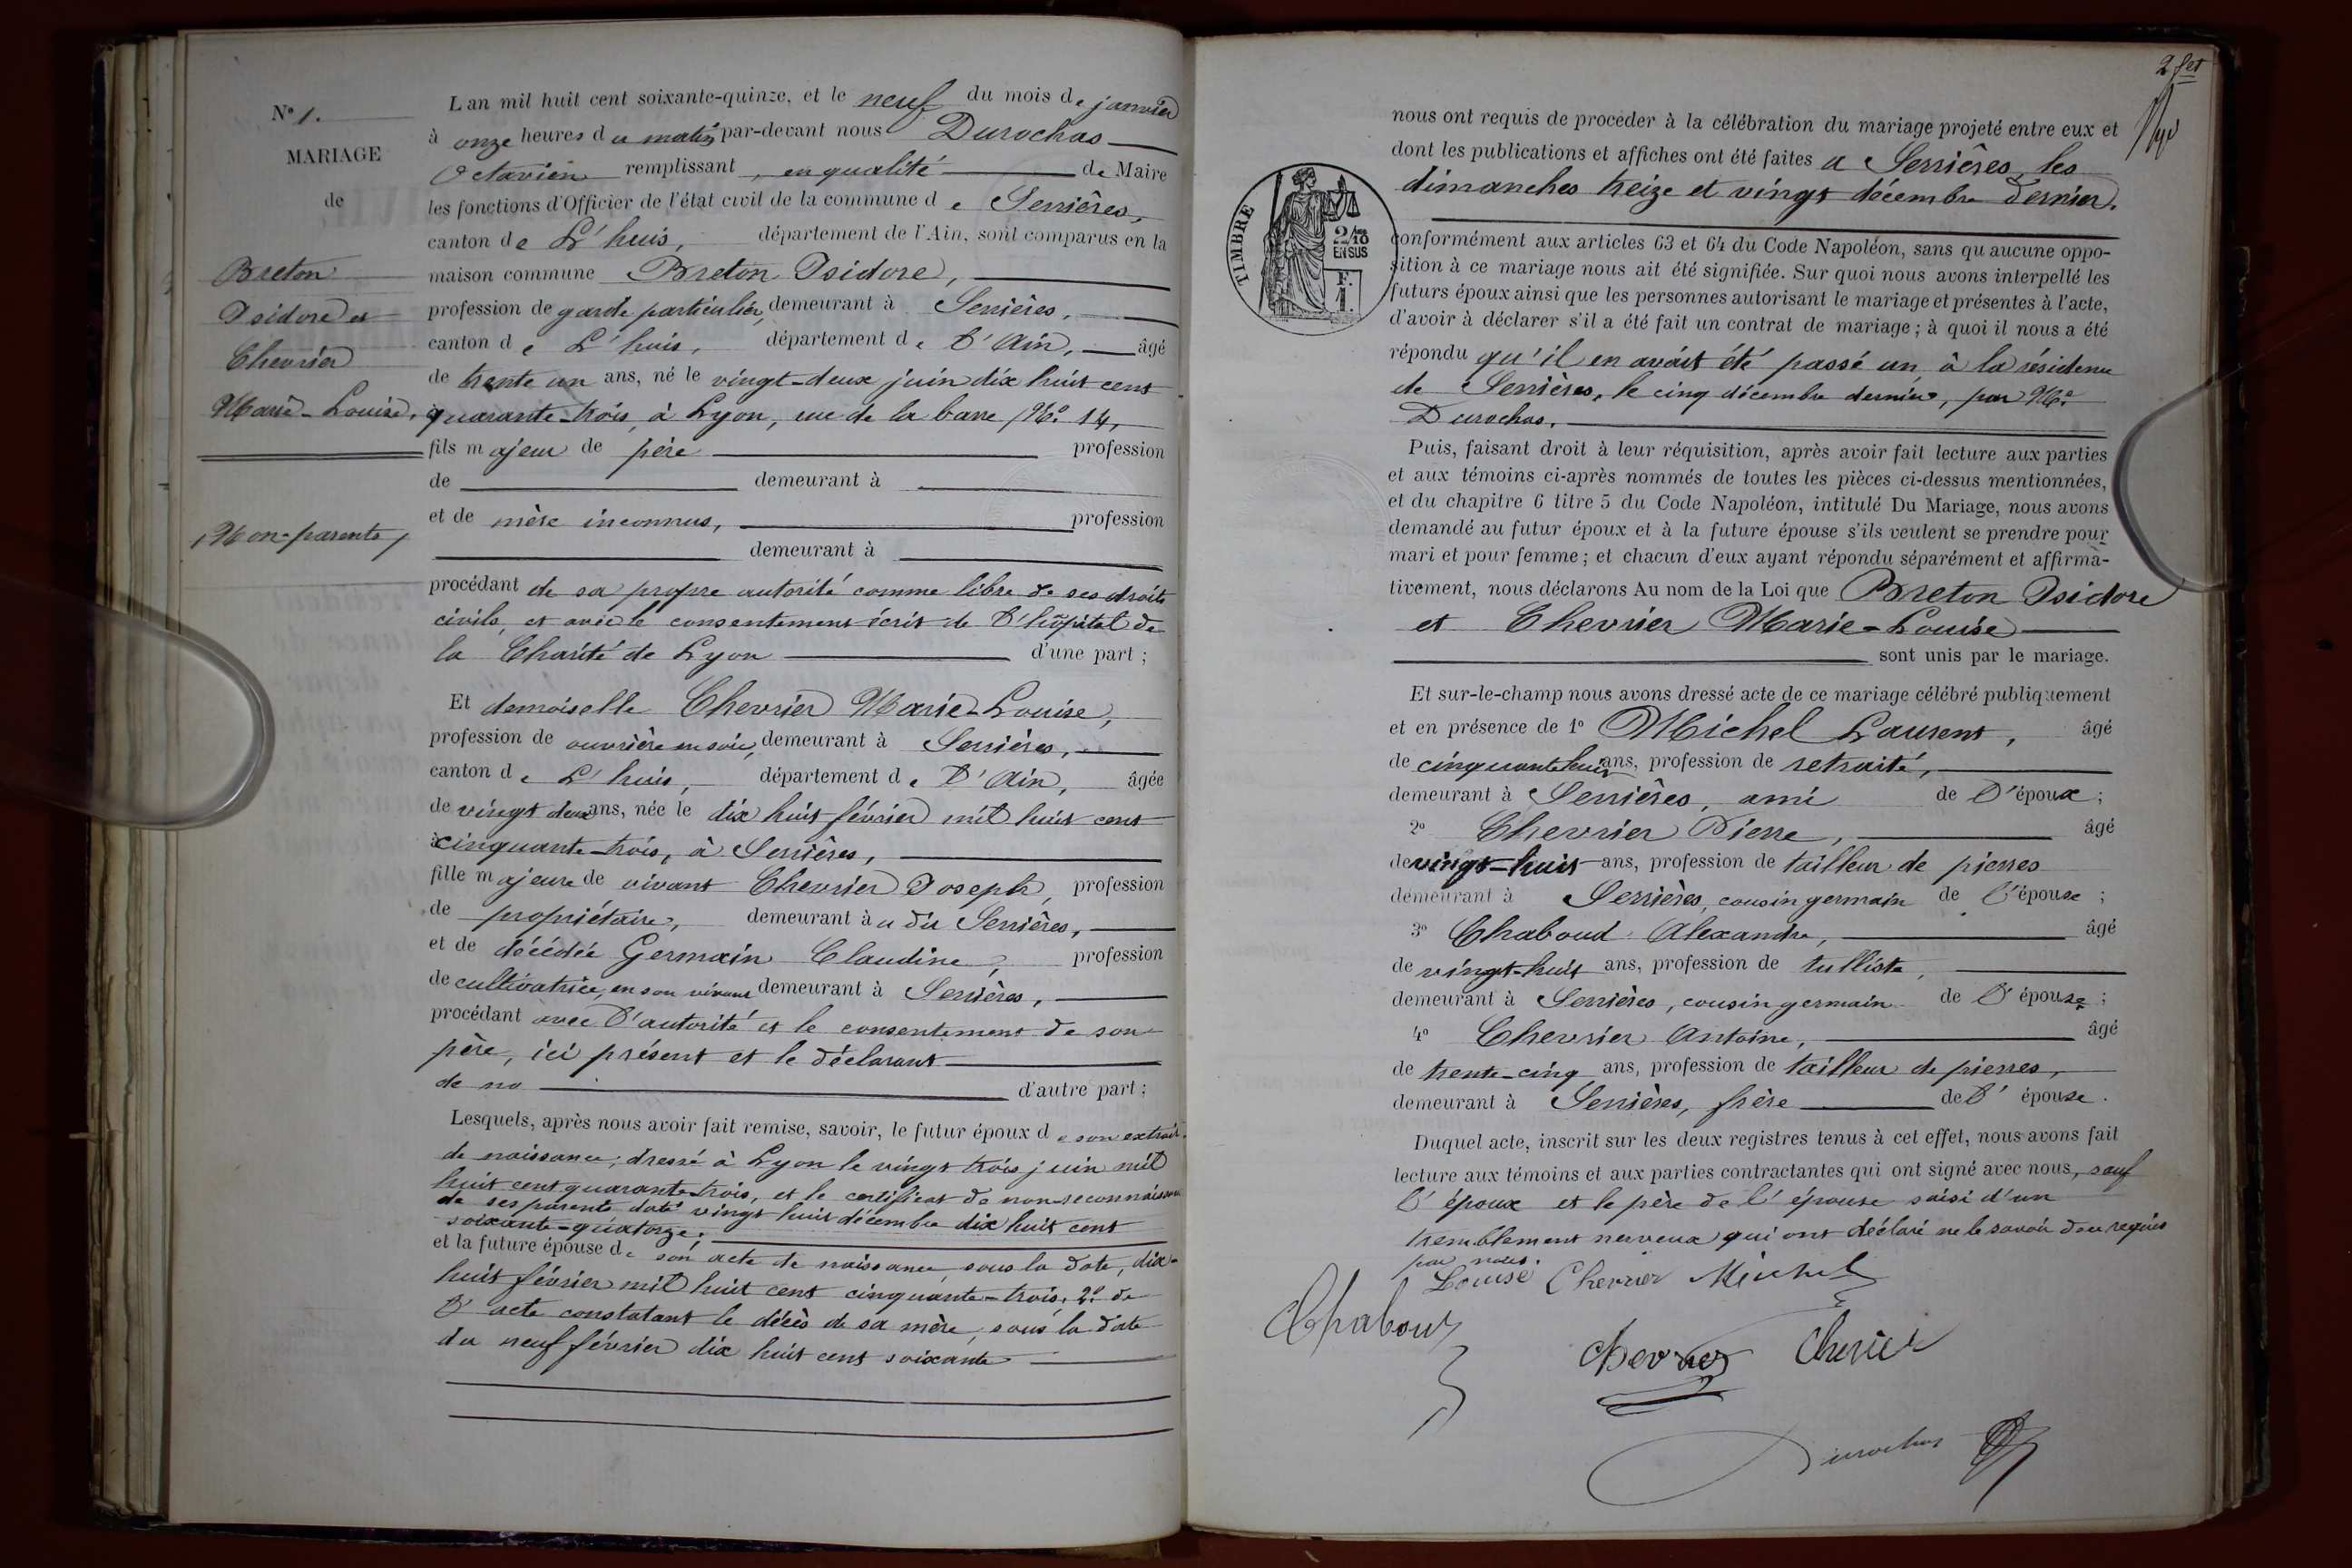 N° 1.
MARIAGE
de
Breton
Isidore et
Chevrier
Marie-Louise,
Non-parents,
L an mil huit cent soixante-quinze, et le neuf du mois de janvier
à onze heures du matin par-devant nous Durochas
Octavien remplissant, en qualité de Maire
les fonctions d'Officier de l'état civil de la commune de Serrières,
canton de L'huis, département de l'Ain, sont comparus en la
maison commune Breton Isidore,
profession de garde particulier, demeurant à Serrières,
canton de L'huis, département de l'Ain, âgé
de trente un ans, né le vingt-deux juin dix huit cent
quarante-trois, à Lyon, rue de la barre, N° 14,
fils majeur de père profession
de demeurant à
et de mère inconnus, profession
demeurant à
procédant de sa propre autorité comme libre de ses droits
civils, et avec le consentement écrit de l'hôpital de
la Charité de Lyon d'une part ;
Et demoiselle Chevrier Marie-Louise,
profession de ouvrière en soie, demeurant à Serrières,
canton de L'huis, département de l'Ain, âgée
de vingt deux ans, née le dix huit février mil huit cent
cinquante-trois, à Serrières,
fille majeure de vivant Chevrier Joseph, profession
de propriétaire, demeurant à u dit Serrières,
et de décédée Germain Claudine, profession
de cultivatrice, en son vivant demeurant à Serrières,
procédant avec l'autorité et le consentement de son
père, ici présent et le déclarant
de no d'autre part ;
Lesquels, après nous avoir fait remise, savoir, le futur époux de son extrait
de naissance, dressé à Lyon le vingt trois juin mil
huit cent quarante-trois, et le certificat de non-reconnaissance
de ses parents daté vingt huit décembre dix huit cent
soixante-quatorze.
et la future épouse de son acte de naissance, sous la date, dix-
huit février mil huit cent cinquante-trois, 2° de
l'acte constatant le décès de sa mère, sous la date
du neuf février dix huit cent soixante
2 fet
nous ont requis de procéder à la célébration du mariage projeté entre eux et
dont les publications et affiches ont été faites à Serrières, les
dimanches treize et vingt décembre dernier.
TIMBRE
2/10
EN SUS
F.
1.
conformément aux articles 63 et 64 du Code Napoléon, sans qu aucune oppo-
sition à ce mariage nous ait été signifiée. Sur quoi nous avons interpellé les
futurs époux ainsi que les personnes autorisant le mariage et présentes à l'acte,
d'avoir à déclarer s'il a été fait un contrat de mariage ; à quoi il nous a été
répondu qu'il en avait été passé un, à la résidence
de Serrières, le cinq décembre dernier, par Me
Durochas.
Puis, faisant droit à leur réquisition, après avoir fait lecture aux parties
et aux témoins ci-après nommés de toutes les pièces ci-dessus mentionnées,
et du chapitre 6 titre 5 du Code Napoléon, intitulé Du Mariage, nous avons
demandé au futur époux et à la future épouse s'ils veulent se prendre pour
mari et pour femme ; et chacun d'eux ayant répondu séparément et affirma-
tivement, nous déclarons Au nom de la Loi que Breton Isidore
et Chevrier Marie-Louise
sont unis par le mariage.
Et sur-le-champ nous avons dressé acte de ce mariage célébré publiquement
et en présence de 1° Michel Laurent, âgé
de cinquante huit ans, profession de retraité,
demeurant à Serrières, ami de l'époux ;
2° Chevrier Pierre, âgé
de vingt-huit ans, profession de tailleur de pierres
demeurant à Serrières, cousin germain de l'épouse ;
3° Chaboud Alexandre, âgé
de vingt-huit ans, profession de tulliste,
demeurant à Serrières, cousin germain de l'épouse ;
4° Chevrier Antoine, âgé
de trente-cinq ans, profession de tailleur de pierres,
demeurant à Serrières, frère de l'épouse.
Duquel acte, inscrit sur les deux registres tenus à cet effet, nous avons fait
lecture aux témoins et aux parties contractantes qui ont signé avec nous, sauf
l'époux et le père de l'épouse saisi d'un
tremblement nerveux qui ont déclaré ne le savoir deu requis
par nous.
Louise Chevrier Michel
Chaboud
Chevrier Chevrier
Durochas